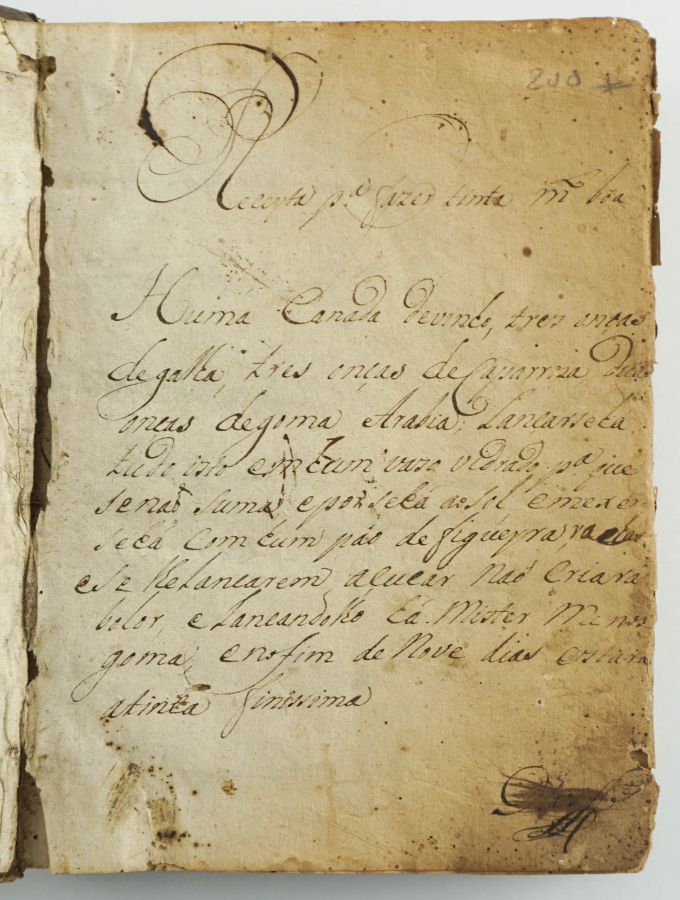 200
Recepta p.ª fazer tinta m.to bõa
Huma Canada devinho, tres onças
de galha, tres onças de Caparroza
onças de goma Arabia, Lancarseha
tudo isto em hum vazo vidrado p.ª que
senaõ suma, eporseha ao sol, emexer
seha Com hum páo de figueyra,
ese lhe Lancarem açucar naõ Criara
bolor, e Lancandolho há Mister Menos
goma, enofim de Nove dias estara
atinta finissima